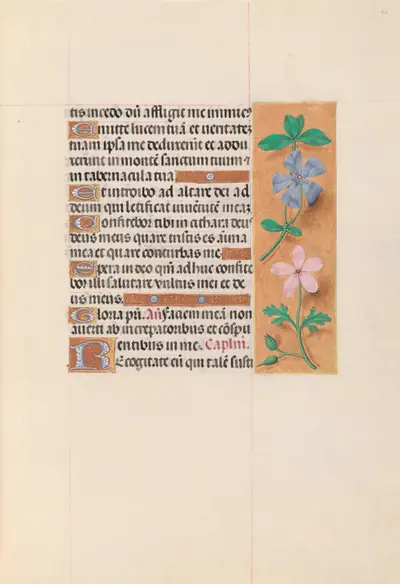 tis incedo dū affligit me inimic⁹
Emitte lucem tuā et ueritatē
tuam ipsa me deduxerūt et addu
xerunt in montē sanctum tuum ⁊
in tabernacula tua
Et introibo ad altare dei ad
deum qui letificat iuuētutē meā
Confitebor tibi in cithara deus
deus meus quare tristis es aīma
mea et quare conturbas me
Spera in deo qm̄ adhuc confite
bor illi salutare vultus mei et de
us meus.
Gloria pri. Añ. Faciem meā non
auerti ab increpatoribus et cōspu
entibus in me. Caplm̄.
Recogitate eū qui talē susti